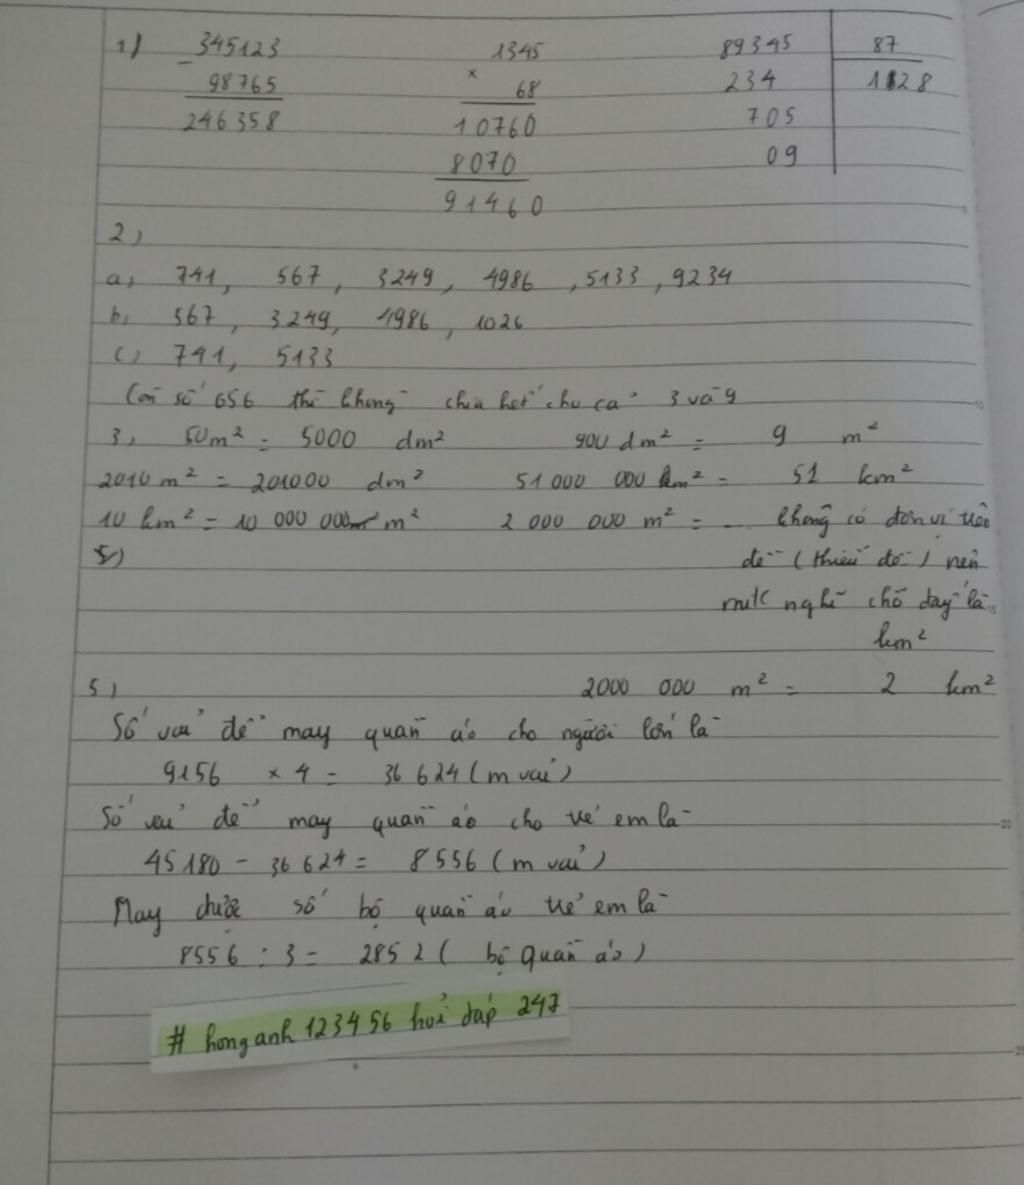 1) 345123 1345 89345 87
- 98765 × 68 234 1128
246358 10760 705
8070 09
91460
2)
a, 741, 567, 3249, 4986, 5133, 9234
b, 567, 3249, 4986, 1026
c, 741, 5133
Còn số 656 thì không chia hết cho cả 3 và 9
3, 50m² = 5000 dm² 900 dm² = 9 m²
2010 m² = 201000 dm² 51 000 000 km² = 51 km²
10 km² = 10 000 000 m² 2 000 000 m² = ... không có đơn vị trên
5) đề (thiếu đề) nên
mik nghĩ chỗ đấy là
km²
5) 2000 000 m² = 2 km²
Số vải để may quần áo cho người lớn là
9156 × 4 = 36 624 (m vải)
Số vải để may quần áo cho trẻ em là
45180 - 36 624 = 8556 (m vải)
May được số bộ quần áo trẻ em là
8556 : 3 = 2852 ( bộ quần áo)
# honganh 123456 hoi dap 247